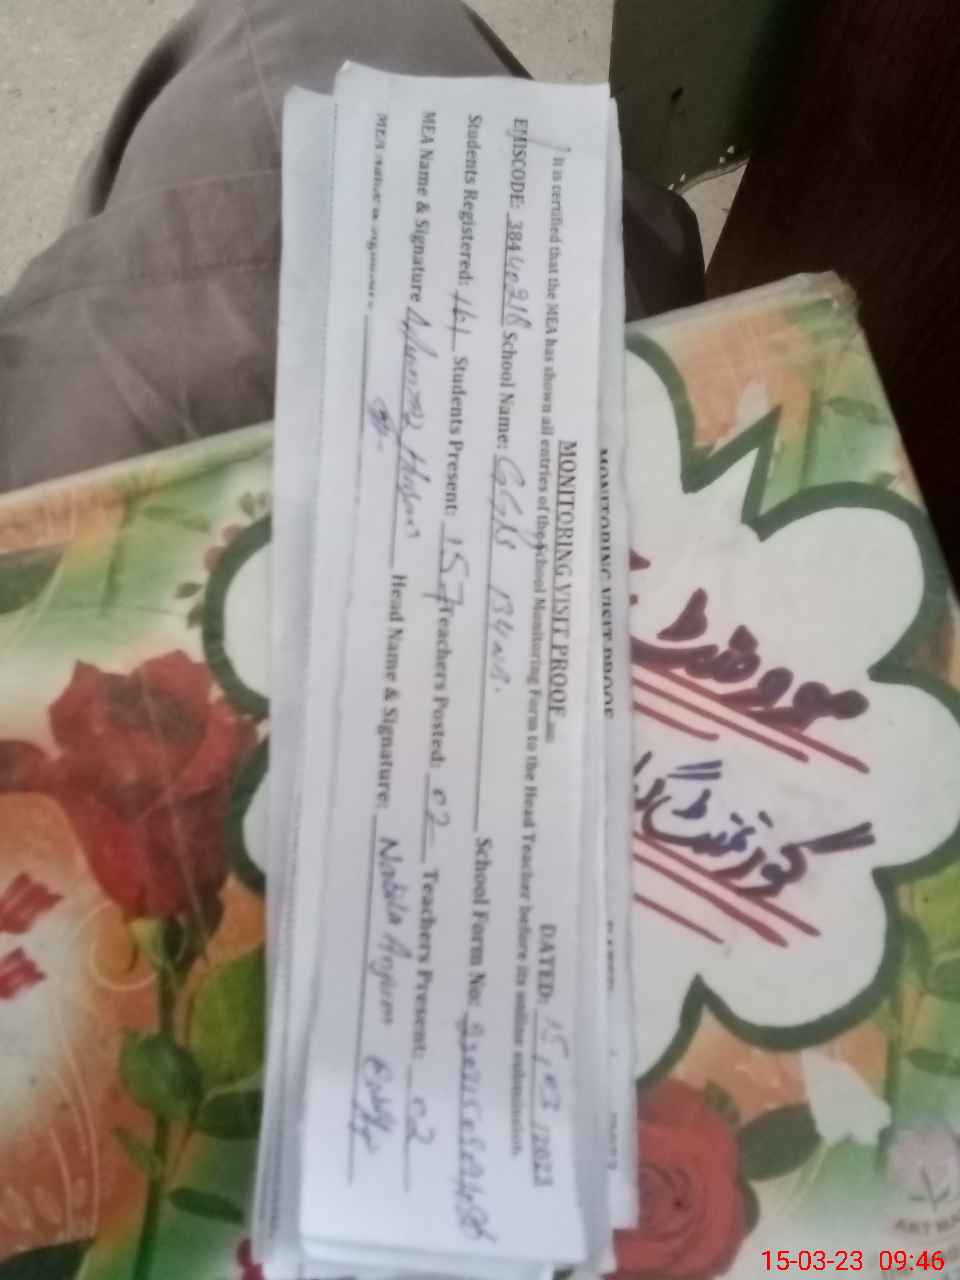 MONITORING VISIT PROOF
MONITORING VISIT PROOF
DATED: 15/03/2023
It is certified that the MEA has shown all entries of the School Monitoring Form to the Head Teacher before its online submission.
EMISCODE: 38440218 School Name: GGPS 134 NB. School Form No:
Students Registered: 161 Students Present: 157 Teachers Posted: 02 Teachers Present: 02
MEA Name & Signature Head Name & Signature: Nabila Anjum
MEA Name & Signature
گورنمنٹ
15-03-23 09:46